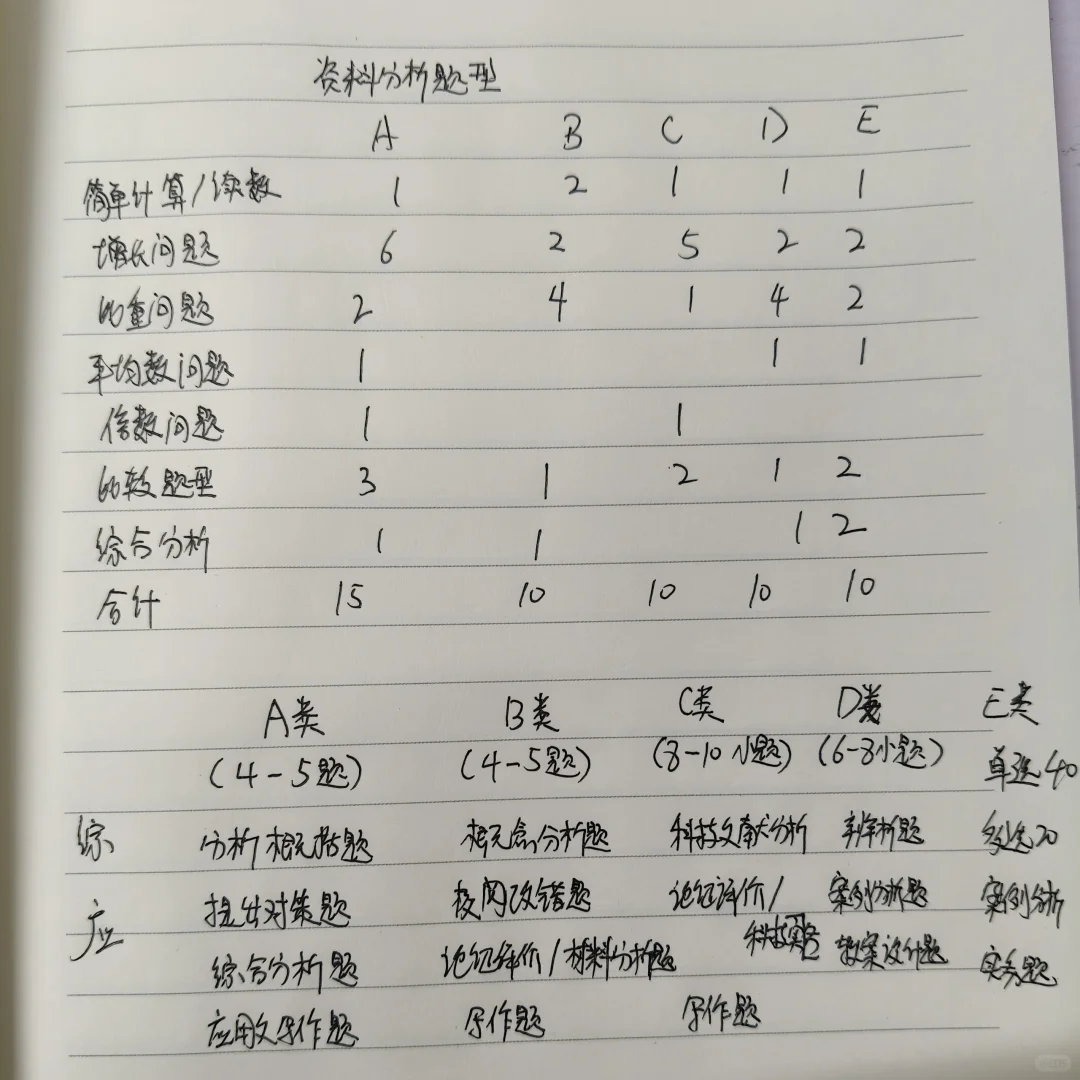 资料分析题型
A B C D E
简单计算/读数 1 2 1 1 1
增长问题 6 2 5 2 2
比重问题 2 4 1 4 2
平均数问题 1 1 1
倍数问题 1 1
比较题型 3 1 2 1 2
综合分析 1 1 1 2
合计 15 10 10 10 10
A类 B类 C类 D类 E类
(4-5题) (4-5题) (8-10小题) (6-8小题) 单选40
综 分析概括题 概念分析题 科技文献分析 辨析题 多选20
应 提出对策题 校阅改错题 论证评价/ 案例分析题 案例分析
综合分析题 论证评价/材料分析题 科技实务 教案设计题 实务题
应用文写作题 写作题 写作题